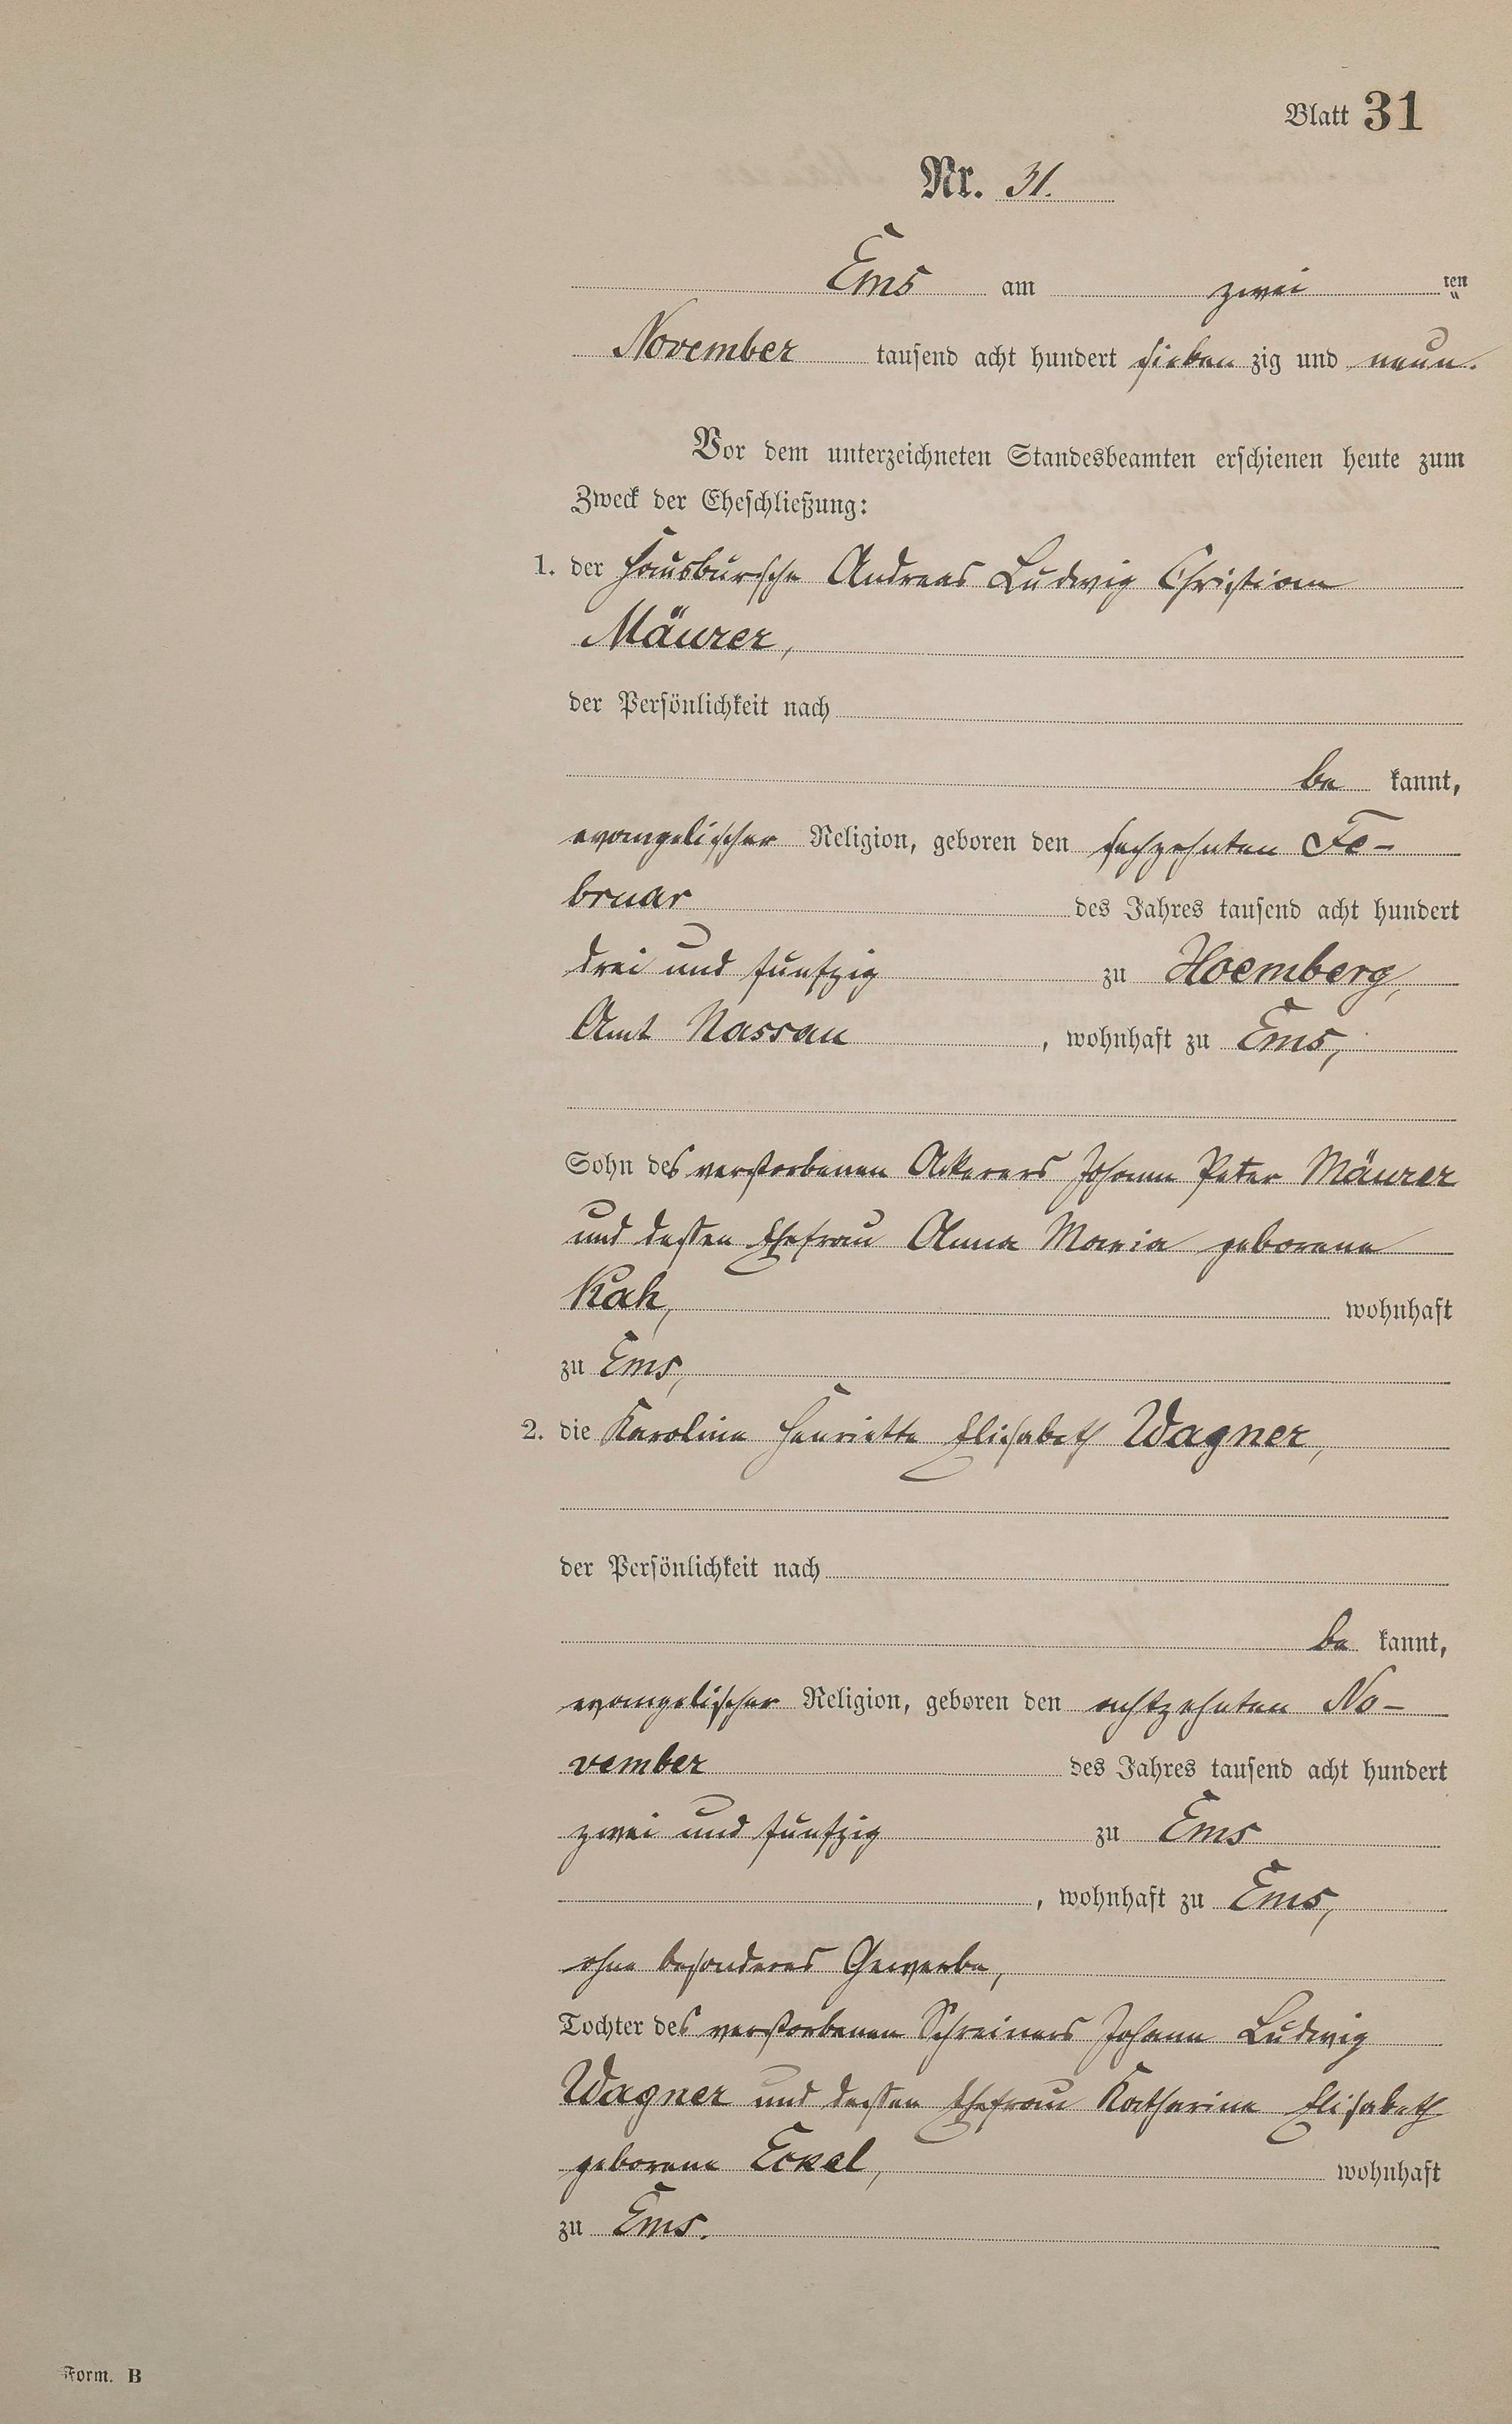 Blatt 31
Nr. 31.
Ems am zwei ten
November tausend acht hundert sieben zig und neun.
Vor dem unterzeichneten Standesbeamten erschienen heute zum
Zweck der Eheschließung:
1. der Hausbursche Andreas Ludwig Christian
Mäurer,
der Persönlichkeit nach
be kannt,
evangelischer Religion, geboren den sechzehnten Fe-
bruar des Jahres tausend acht hundert
drei und fünfzig zu Hoemberg,
Amt Nassau, wohnhaft zu Ems,
Sohn des verstorbenen Ackerers Johann Peter Mäurer
und dessen Ehefrau Anna Maria geborene
Kah, wohnhaft
zu Ems,
2. die Karoline Henriette Elisabeth Wagner,
der Persönlichkeit nach
be kannt,
evangelischer Religion, geboren den achtzehnten No-
vember des Jahres tausend acht hundert
zwei und fünfzig zu Ems
, wohnhaft zu Ems,
ohne besonderes Gewerbe,
Tochter des verstorbenen Schreiners Johann Ludwig
Wagner und dessen Ehefrau Katharine Elisabeth
geborene Eckel, wohnhaft
zu Ems.
Form. B